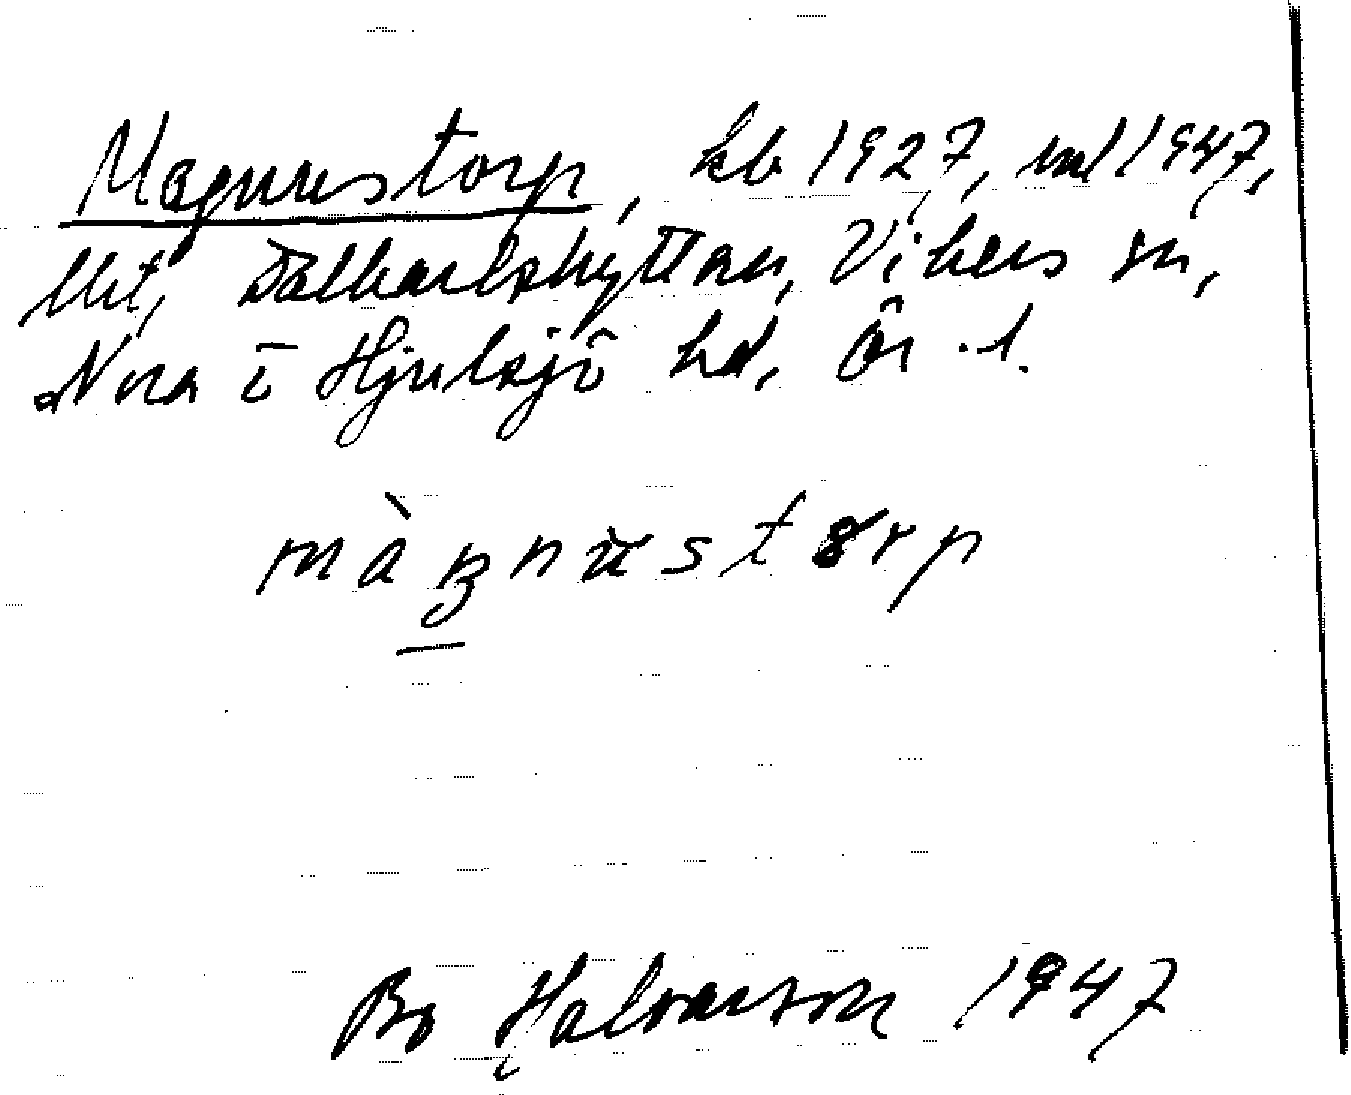 Magnustorp, kb 1927, ml 1947,
lht, Dalkarlshyttan, Vikers sn,
Nora o Hjulsjö hd, Ör. l.
màgnustorp
Bo Halvarson 1947